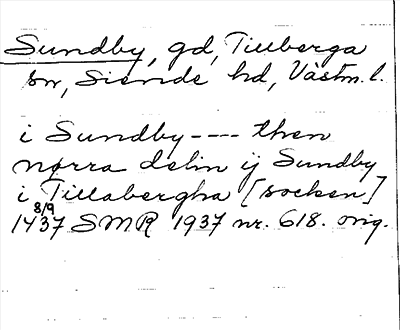 Sundby, gd, Tillberga
sn, Siende hd, Västm. l.
i Sundby---- then
norra delin ij Sundby
i Tillabergha [socken]
14 8/9 37 SMR 1937 nr. 618. orig.